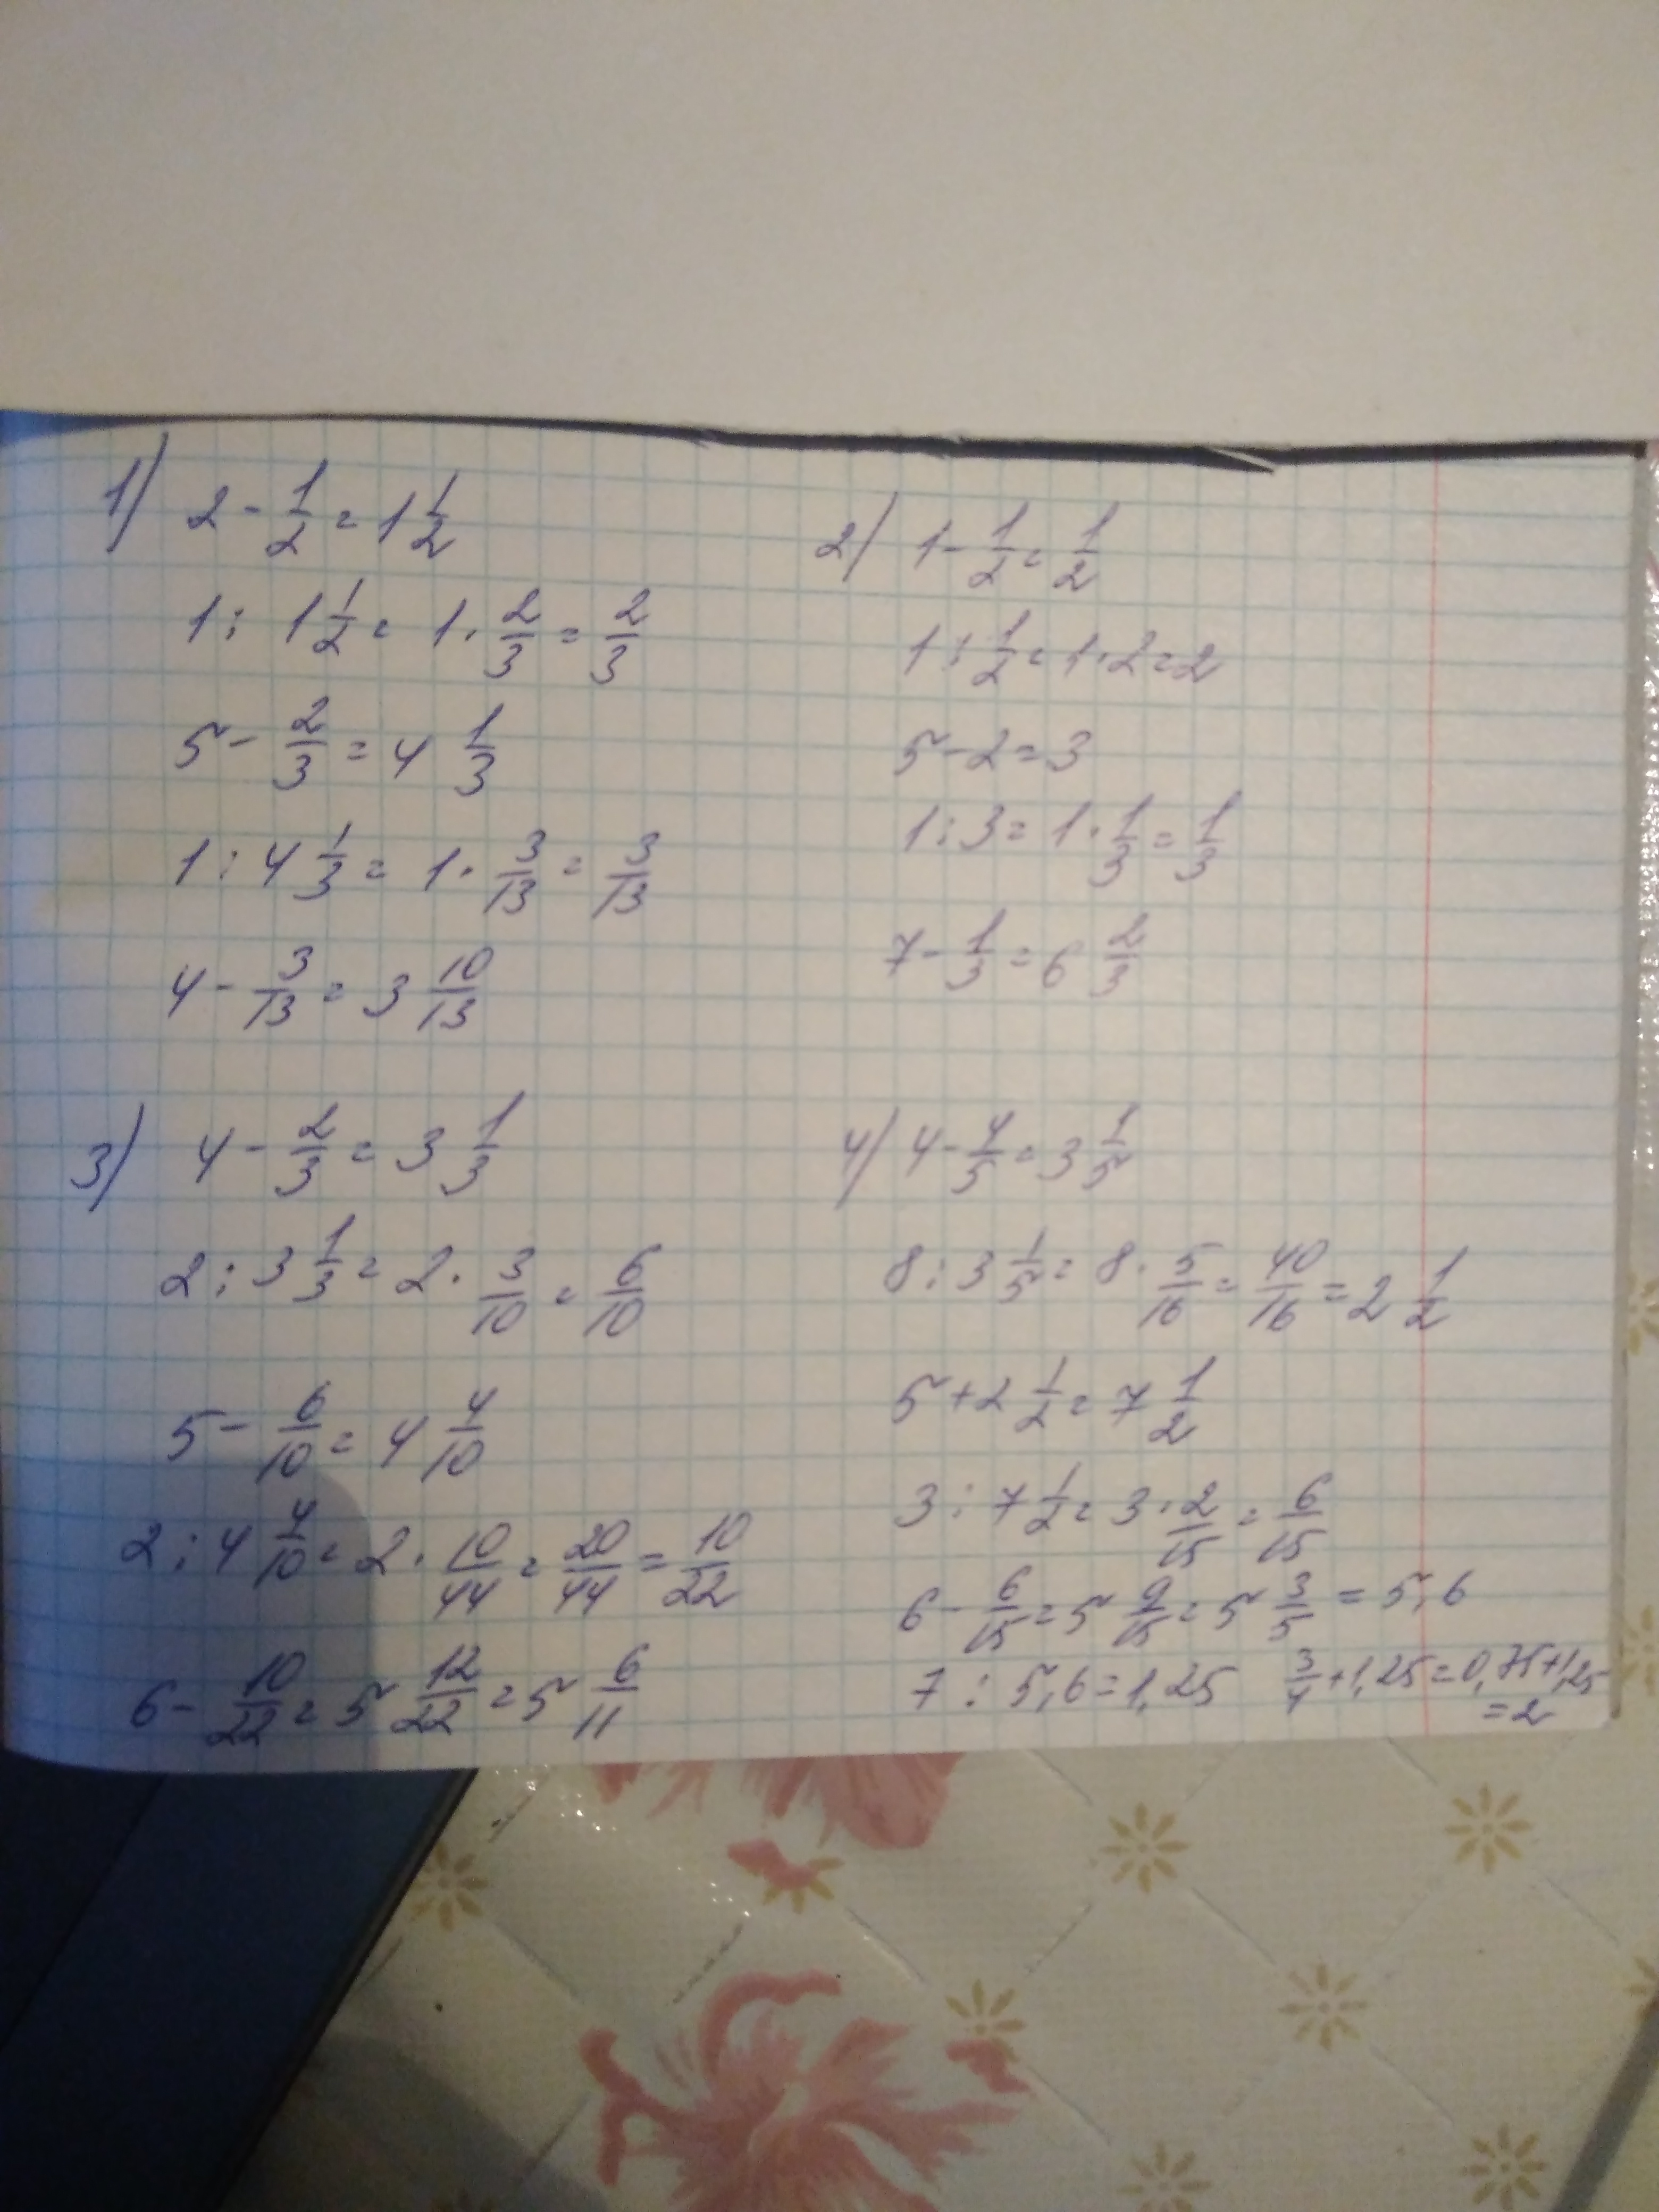 1) 2 - 1/2 = 1 1/2
1 : 1 1/2 = 1 · 2/3 = 2/3
5 - 2/3 = 4 1/3
1 : 4 1/3 = 1 · 3/13 = 3/13
4 - 3/13 = 3 10/13
2) 1 - 1/2 = 1/2
1 : 1/2 = 1 · 2 = 2
5 - 2 = 3
1 : 3 = 1 · 1/3 = 1/3
7 - 1/3 = 6 2/3
3) 4 - 2/3 = 3 1/3
2 : 3 1/3 = 2 · 3/10 = 6/10
5 - 6/10 = 4 4/10
2 : 4 4/10 = 2 · 10/44 = 20/44 = 10/22
6 - 10/22 = 5 12/22 = 5 6/11
4) 4 - 4/5 = 3 1/5
8 : 3 1/5 = 8 · 5/16 = 40/16 = 2 1/2
5 + 2 1/2 = 7 1/2
3 : 7 1/2 = 3 · 2/15 = 6/15
6 - 6/15 = 5 9/15 = 5 3/5 = 5,6
7 : 5,6 = 1,25 3/4 + 1,25 = 0,75 + 1,25
= 2